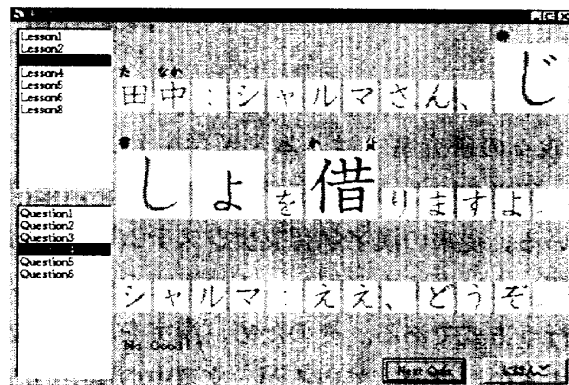 Lesson1
Lesson2
Lesson4
Lesson5
Lesson6
Lesson8
Question1
Question2
Question3
Question5
Question6
田中：シャルマさん、じ
しょを借りますよ。
シャルマ：ええ、どうぞ
No Good
Next Ques.
にほんご